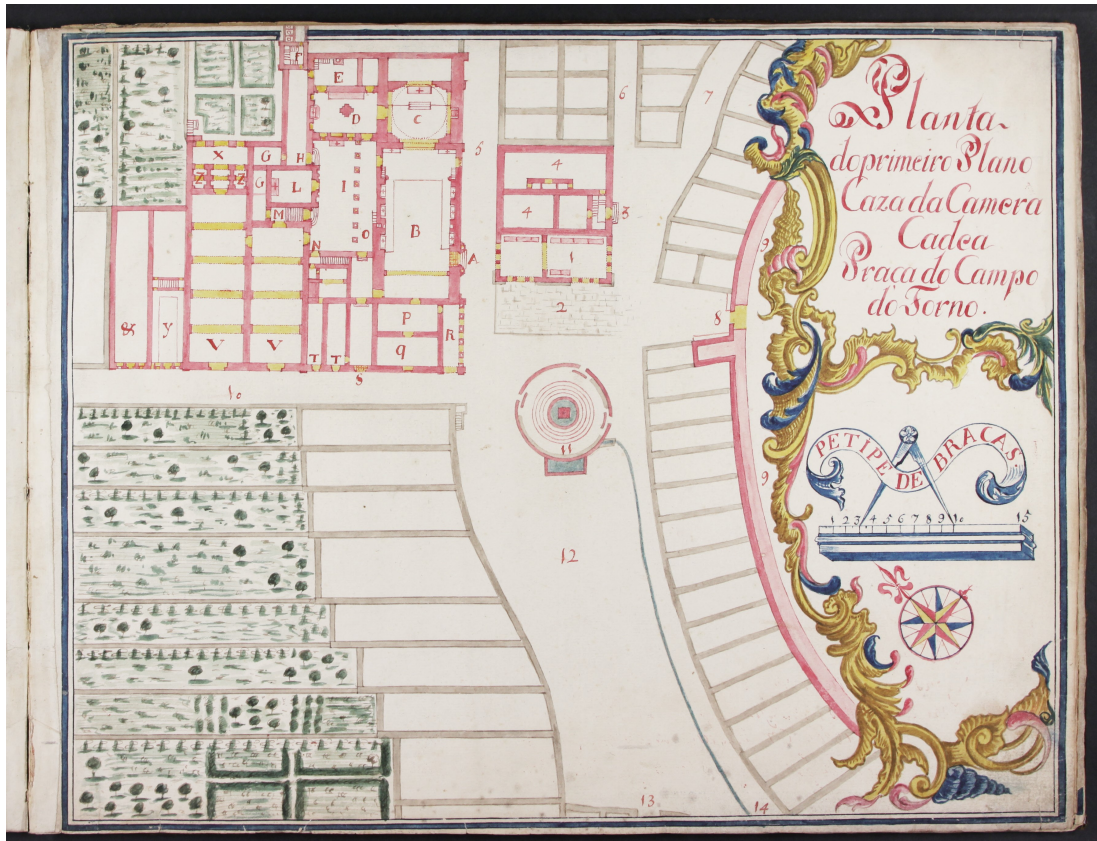 Planta
do primeiro Plano
Caza da Camera
Cadea
Praca do Campo
do Torno.
PETIPE DE BRACAS
1 2 3 4 5 6 7 8 9 10 15
r
E
D
C
X
G
H
Z
Z
G
L
I
M
B
N
O
A
&
y
V
V
T
T
P
q
R
S
4
4
3
1
2
5
6
7
8
9
9
10
11
12
13
14